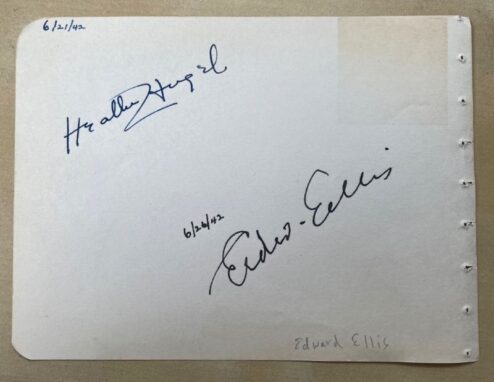 6/21/42
Heather Angel
6/26/42
Edw. Ellis
Edward Ellis